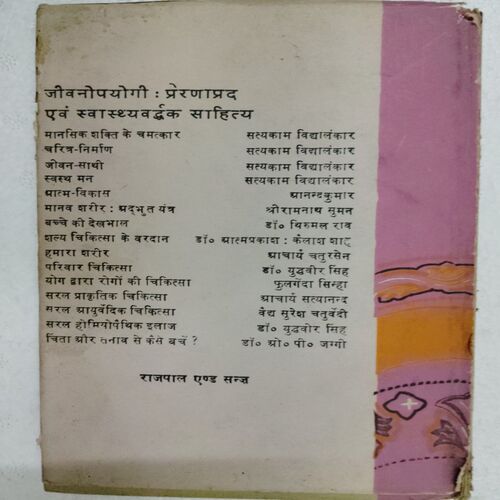 जीवनोपयोगी : प्रेरणाप्रद
एवं स्वास्थ्यवर्द्धक साहित्य
मानसिक शक्ति के चमत्कार सत्यकाम विद्यालंकार
चरित्र-निर्माण सत्यकाम विद्यालंकार
जीवन-साथी सत्यकाम विद्यालंकार
स्वस्थ मन सत्यकाम विद्यालंकार
आत्म-विकास आनन्दकुमार
मानव शरीर : अद्भुत यंत्र श्रीरामनाथ सुमन
बच्चे की देखभाल डॉ० थिरुमल राव
शल्य चिकित्सा के वरदान डॉ० आत्मप्रकाश : कैलाश शाह
हमारा शरीर आचार्य चतुरसेन
परिवार चिकित्सा डॉ० युद्धवीर सिंह
योग द्वारा रोगों की चिकित्सा फुलगेंदा सिन्हा
सरल प्राकृतिक चिकित्सा आचार्य सत्यानन्द
सरल आयुर्वेदिक चिकित्सा वैद्य सुरेश चतुर्वेदी
सरल होमियोपैथिक इलाज डॉ० युद्धवीर सिंह
चिंता और तनाव से कैसे बचें ? डॉ० ओ० पी० जग्गी
राजपाल एण्ड सन्ज़